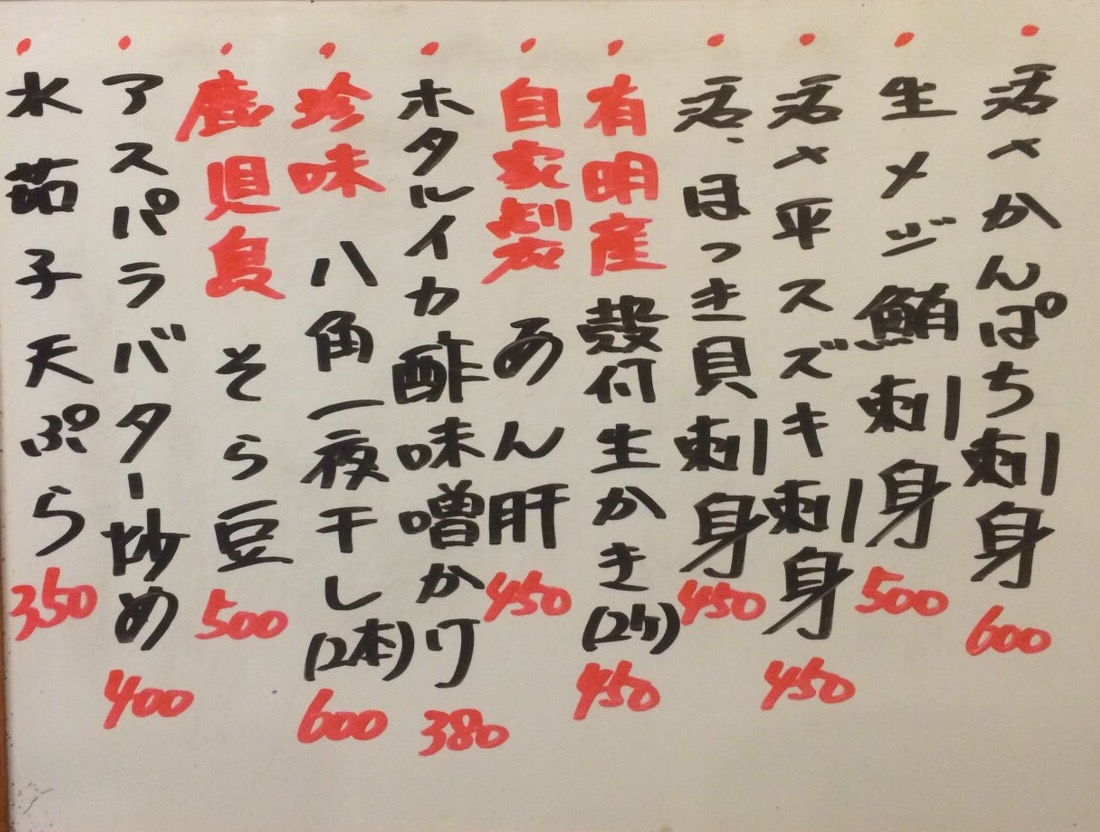 活〆かんぱち刺身 600
生メジ鮪刺身 500
活〆平スズキ刺身 450
活、ほっき貝刺身 450
有明産 殻付生かき(2ケ) 450
自家製 あん肝 450
ホタルイカ酢味噌かけ 380
珍味 八角一夜干し(2本) 600
鹿児島 そら豆 500
アスパラバター炒め 400
水茄子天ぷら 350